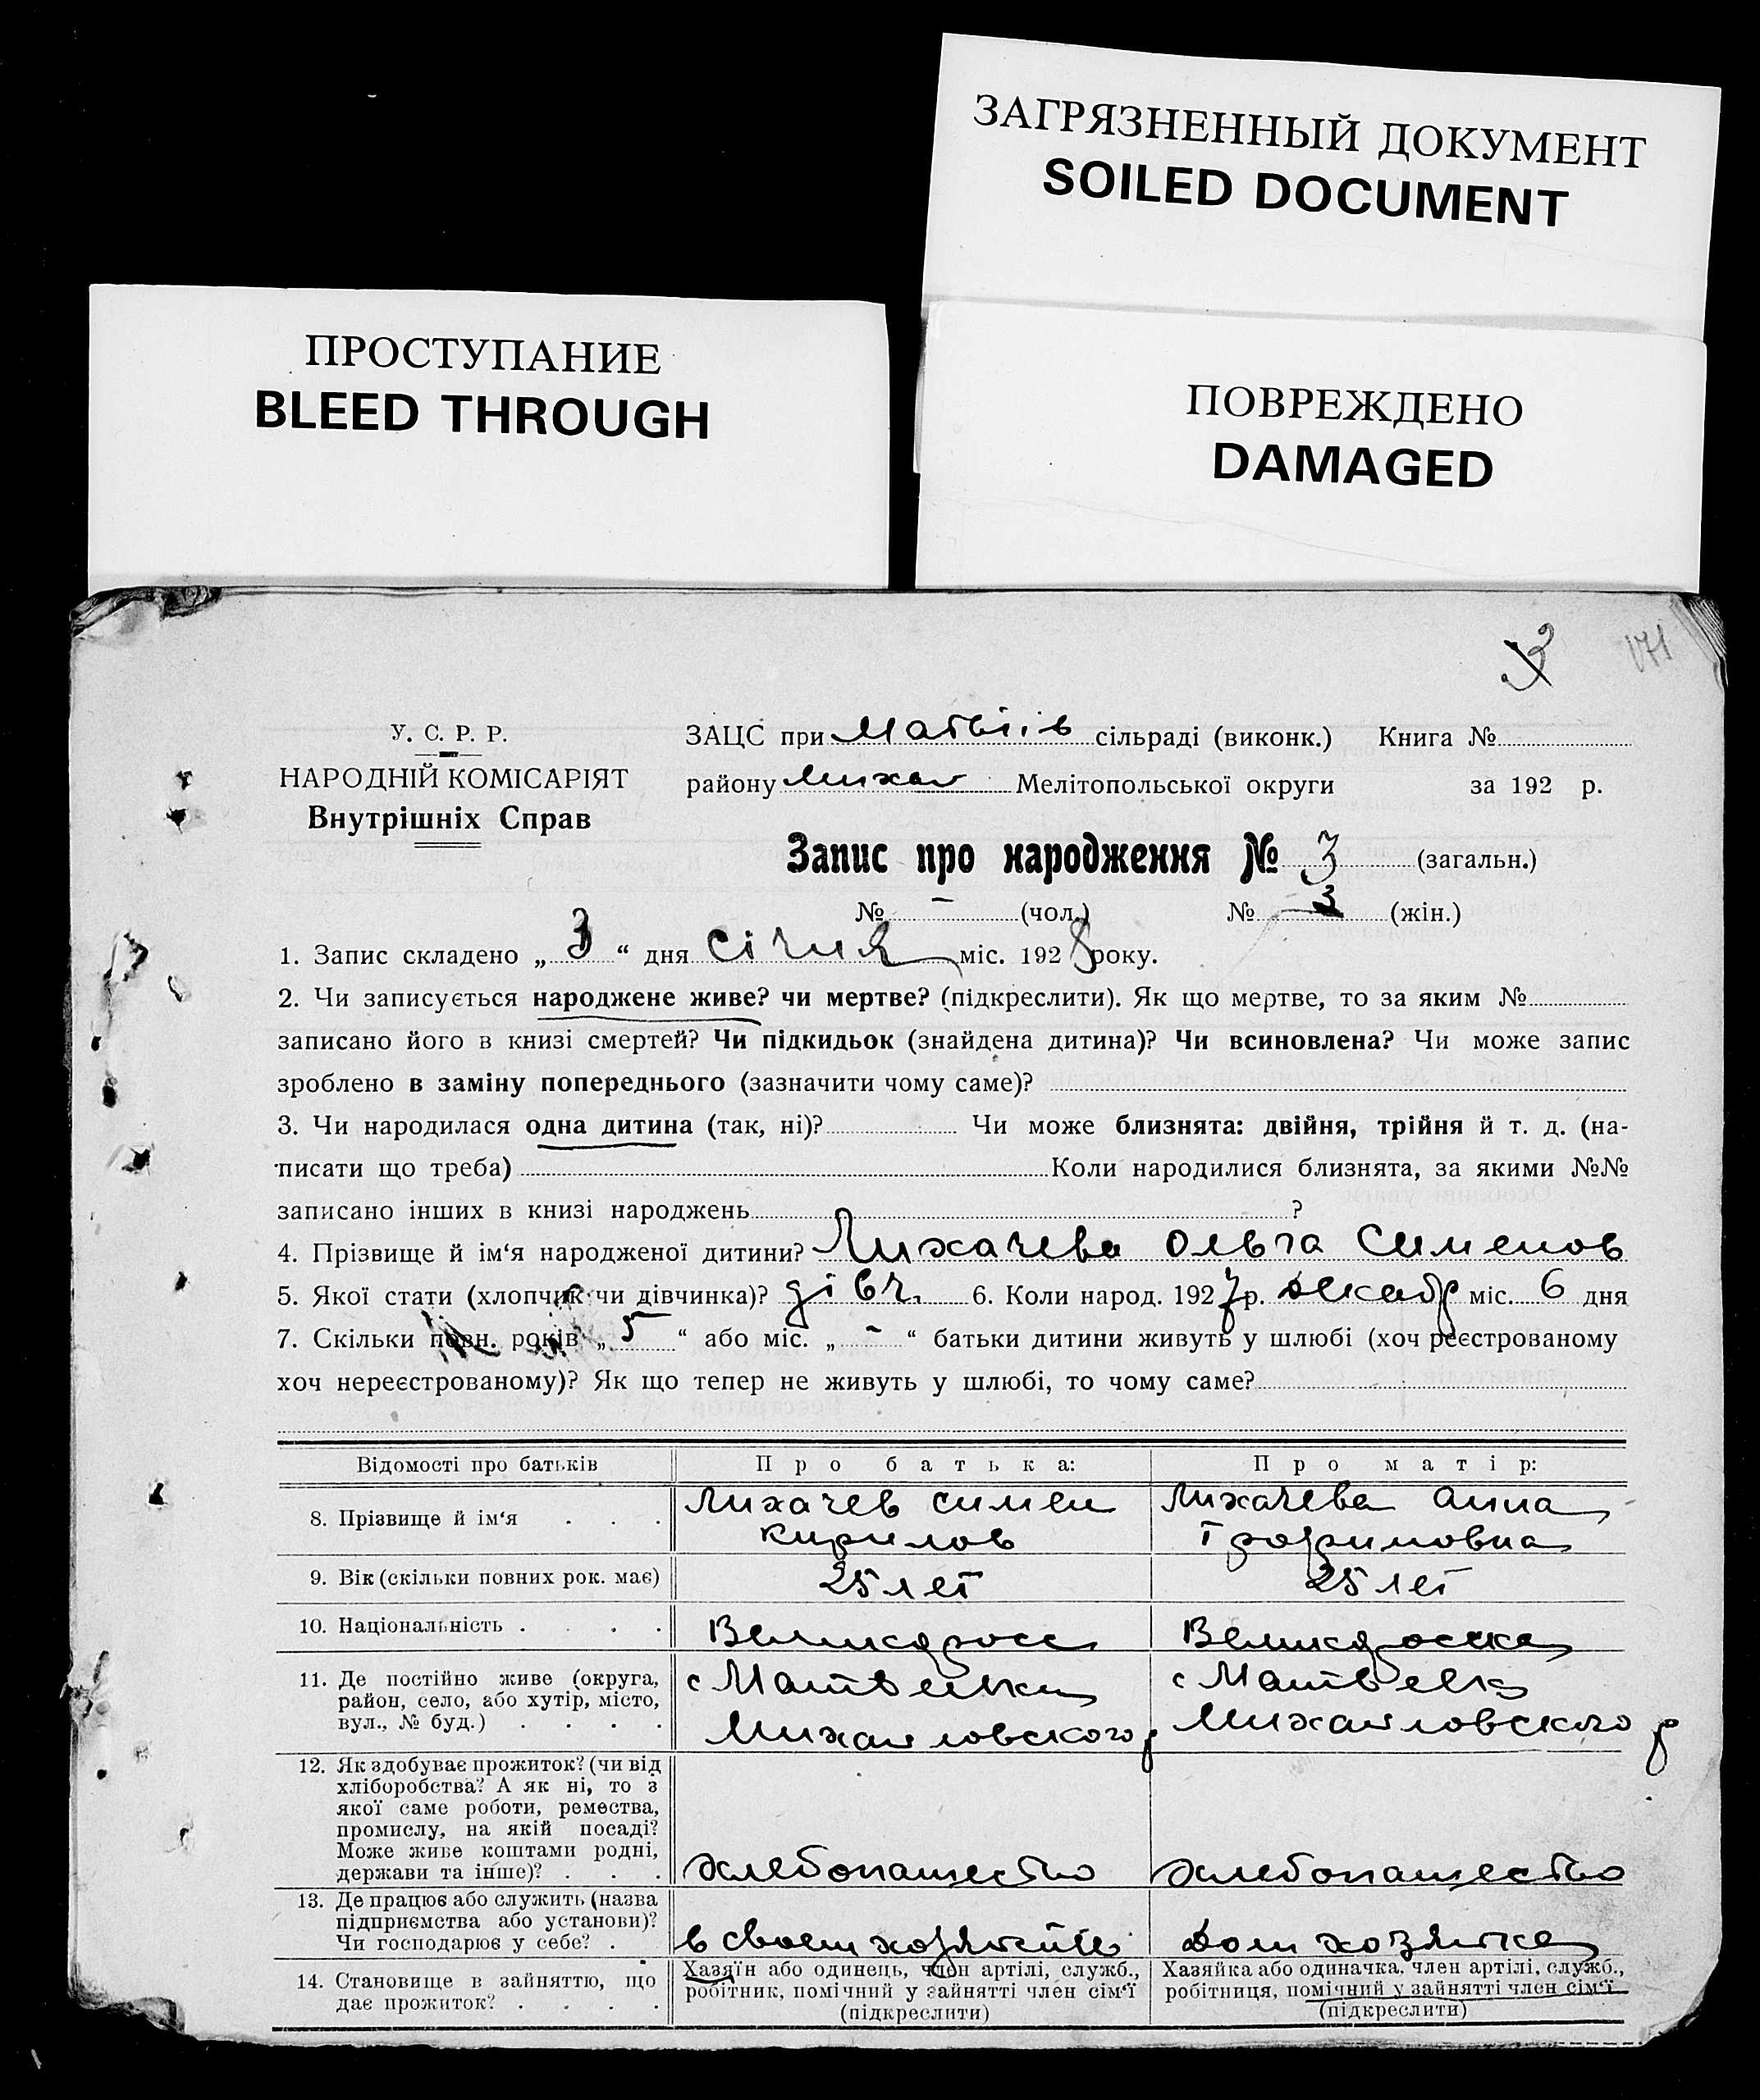 ЗАГРЯЗНЕННЫЙ ДОКУМЕНТ
SOILED DOCUMENT
ПРОСТУПАНИЕ
BLEED THROUGH
ПОВРЕЖДЕНО
DAMAGED
3 171
У. С. Р. Р.
НАРОДНІЙ КОМІСАРІЯТ
Внутрішніх Справ
ЗАЦС при Матвіів сільраді (виконк.) Книга №
району Михай Мелітопольської округи за 192 р.
Запис про народження № 3 (загальн.)
№ - (чол.) № 3 (жін.)
1. Запис складено „ 3 “ дня січня міс. 1928 року.
2. Чи записується народжене живе? чи мертве? (підкреслити). Як що мертве, то за яким №
записано його в книзі смертей? Чи підкидьок (знайдена дитина)? Чи всиновлена? Чи може запис
зроблено в заміну попереднього (зазначити чому саме)?
3. Чи народилася одна дитина (так, ні)? Чи може близнята: двійня, трійня й т. д. (на-
писати що треба) Коли народилися близнята, за якими №№
записано інших в книзі народжень ?
4. Прізвище й ім‘я народженої дитини? Лихачева Ольга Сименов
5. Якої стати (хлопчик чи дівчинка)? дівч. 6. Коли народ. 1927 р. декабр міс. 6 дня
7. Скільки повн. років „ 5 “ або міс. „ - “ батьки дитини живуть у шлюбі (хоч реєстрованому
хоч нереєстрованому)? Як що тепер не живуть у шлюбі, то чому саме?
Відомості про батьків Про батька: Про матір:
8. Прізвище й ім‘я . . . Лихачев Симен Лихачева Анна
Кирилов Трофимовна
9. Вік (скільки повних рок. має) 25 лет 25 лет
10. Національність . . . . Великоросс Великоросска
11. Де постійно живе (округа, район, село, або хутір, місто, вул., № буд.) . . . .
с Матвеевка с Матвеевка
Михайловского р Михайловского р
12. Як здобуває прожиток? (чи від
хліборобства? А як ні, то з
якої саме роботи, ремества,
промислу, на якій посаді?
Може живе коштами родні,
держави та інше)? . . . хлебопашество хлебопашество
13. Де працює або служить (назва
підприємства або установи)?
Чи господарює у себе? . в своем хозяйстве дом хозяйка
14. Становище в зайняттю, що
дає прожиток? . . . .
Хазяїн або одинець, член артілі, служб.,
робітник, помічний у зайнятті член сім‘ї
(підкреслити)
Хазяйка або одиначка, член артілі, служб.,
робітниця, помічний у зайнятті член сім‘ї
(підкреслити)